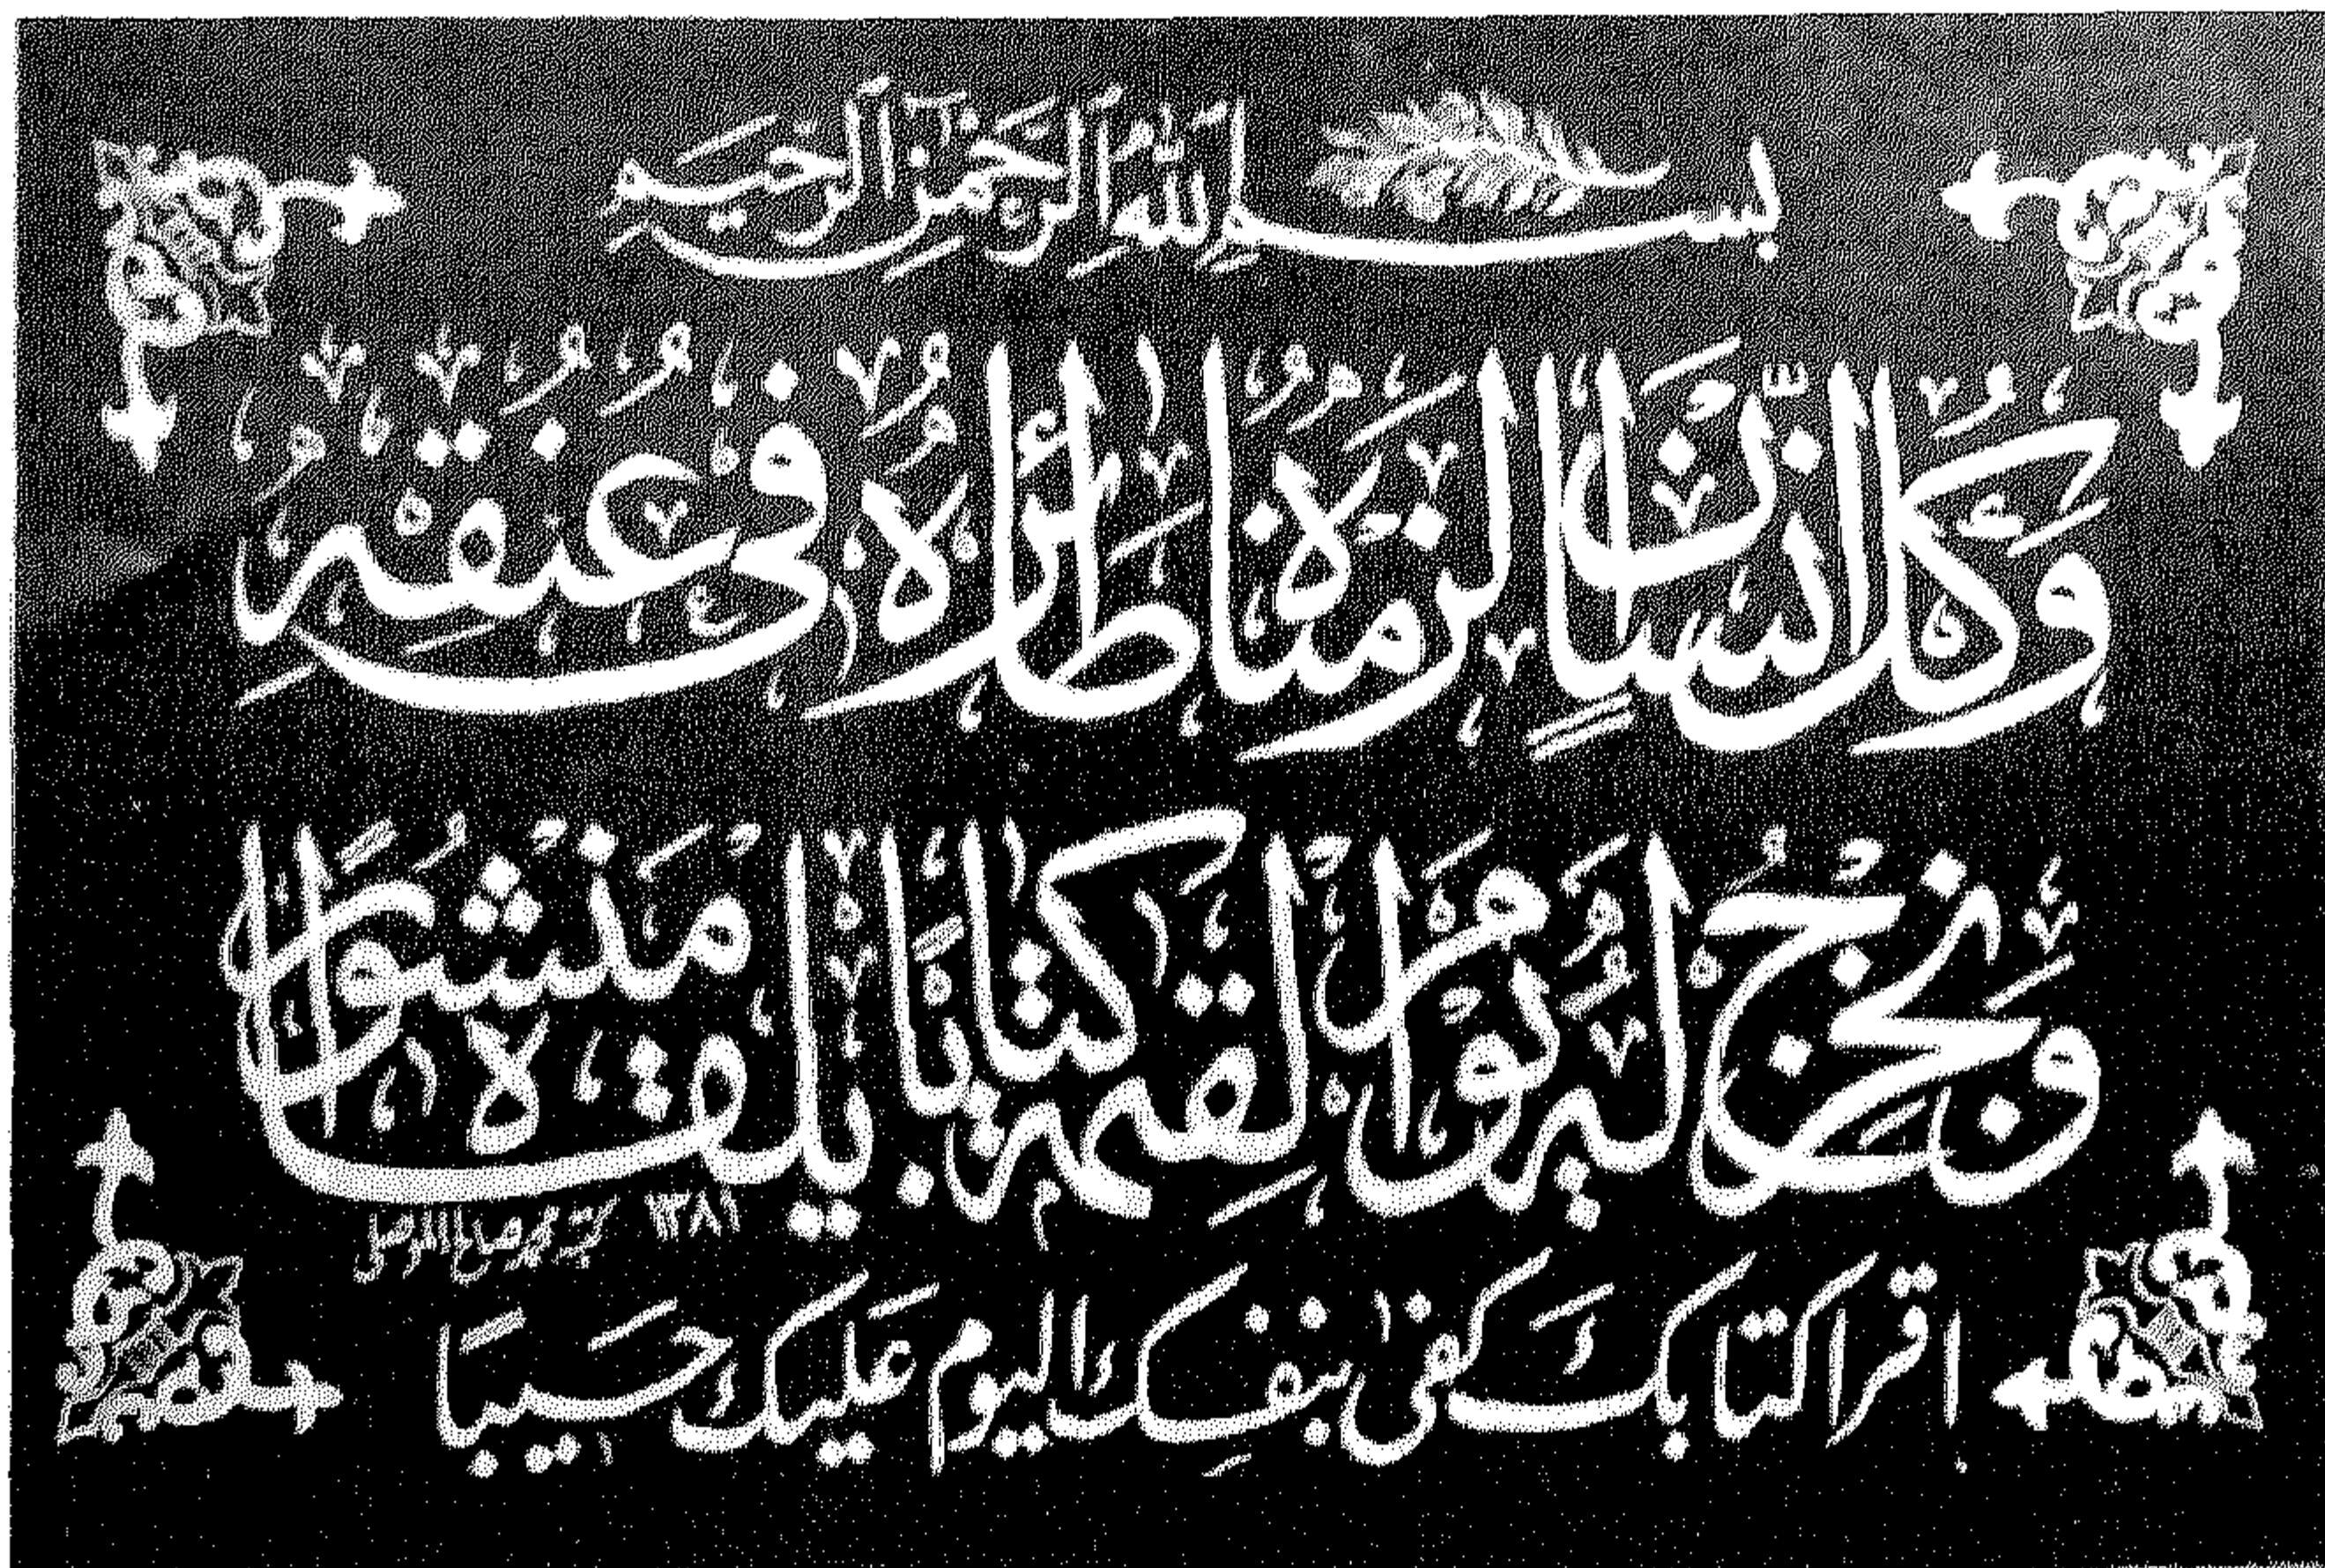 بِسْمِ اللهِ الرَّحْمٰنِ الرَّحِيمِ
وَكُلَّ اِنسَانٍ اَلْزَمْنَاهُ طَائِرَهُ فِي عُنُقِهِ
وَنُخْرِجُ لَهُ يَوْمَ الْقِيٰمَةِ كِتَابًا يَلْقٰهُ مَنْشُورًا
كتبه محمد صالح الموصلي ١٣٨١
اقرا كتابك كفى بنفسك اليوم عليك حسيبا